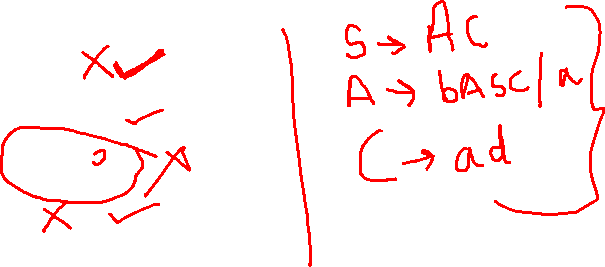 S → AC
A → bASC/a
C → ad